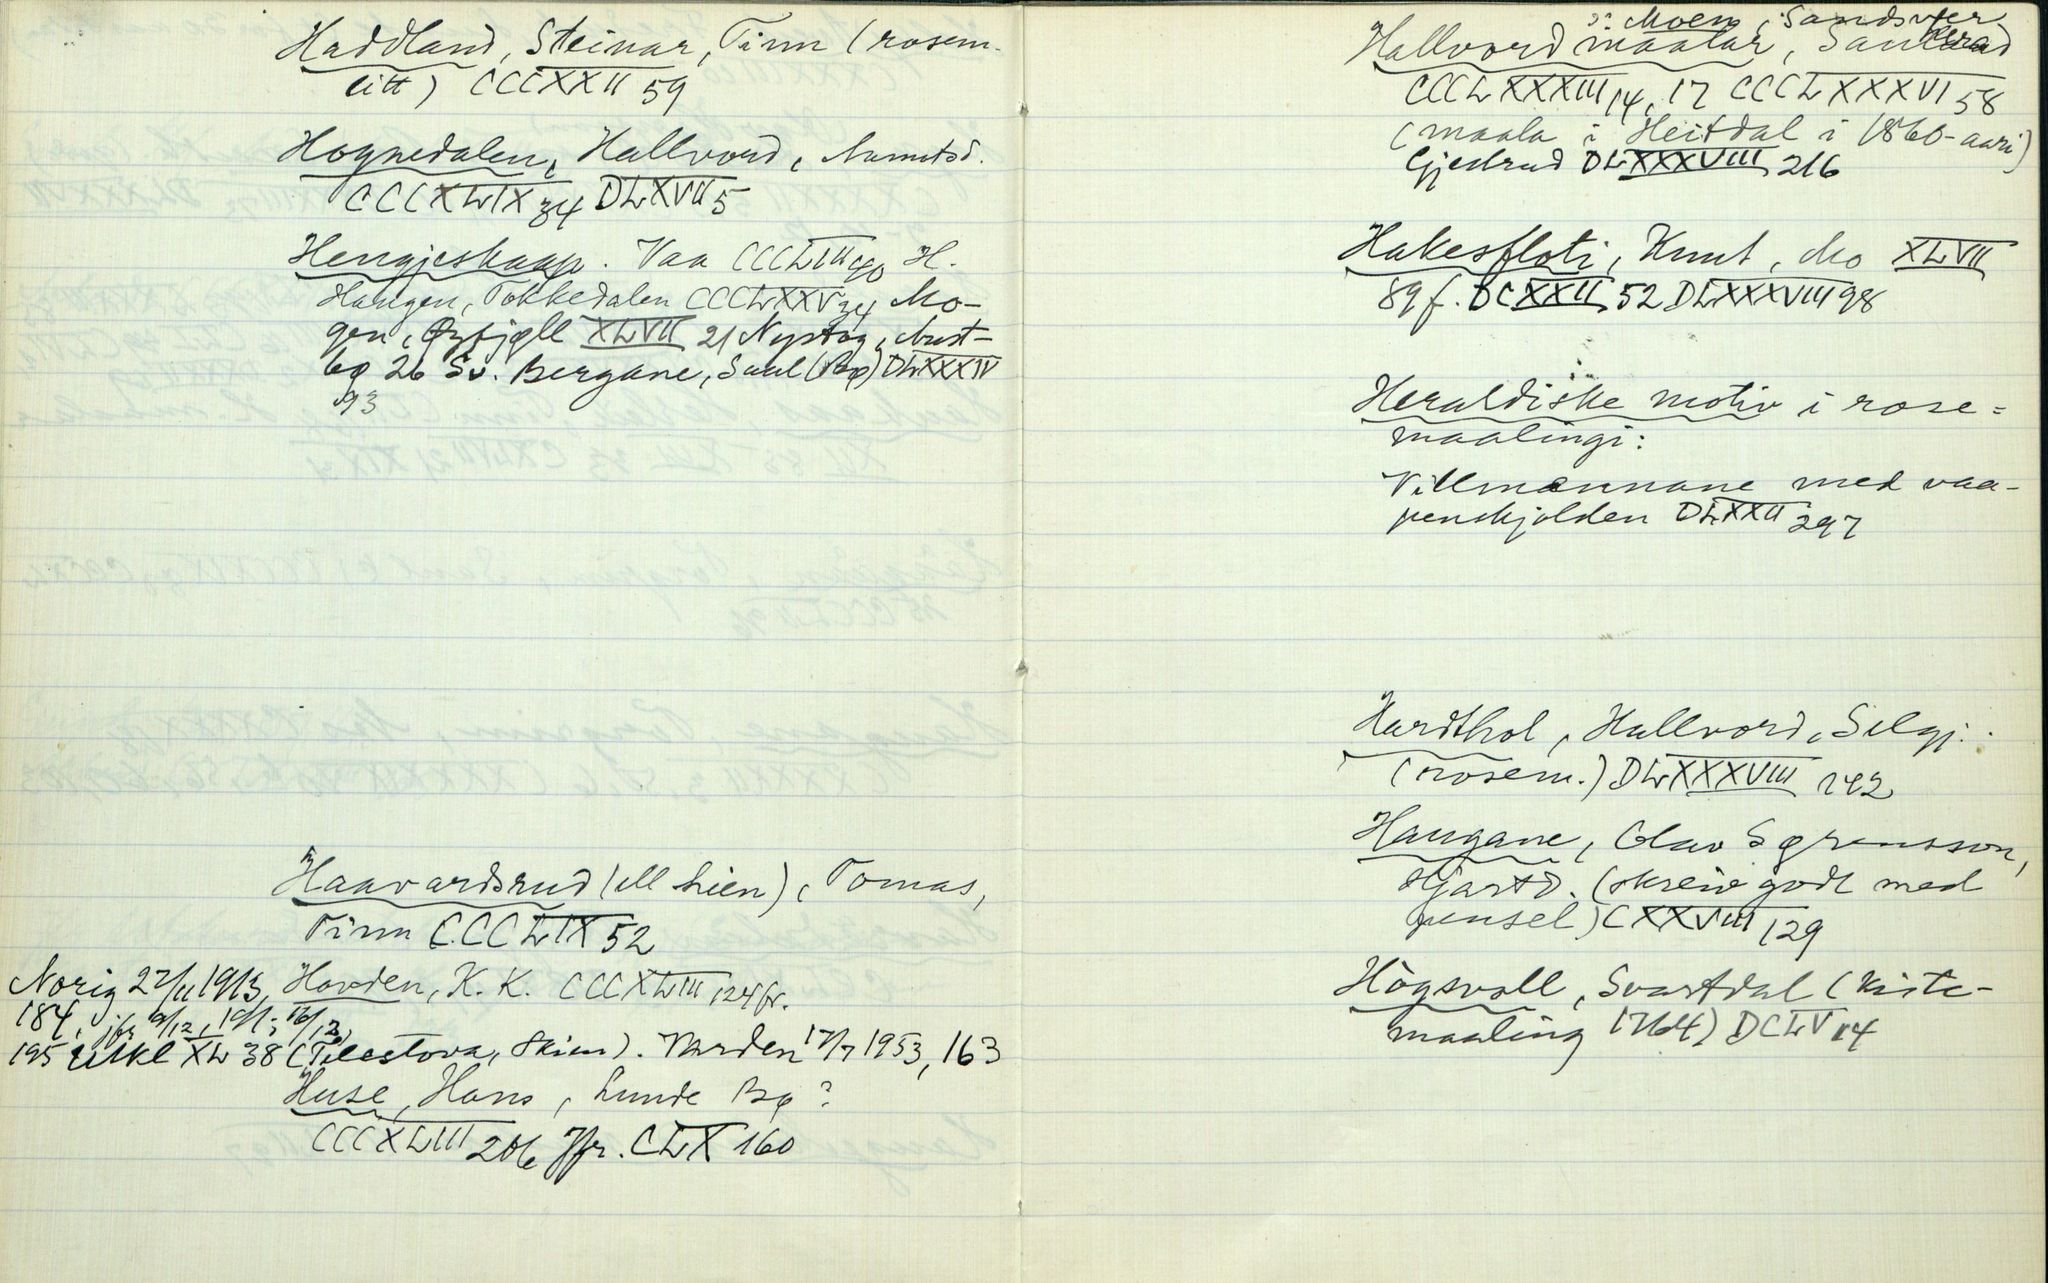 Haddland, Steinar, Tinn (rosem.
litt) CCCXXII 59
Hognedalen, Hallvord, Aamotsd.
CCCXLIX 34 DLXVII 5
Hengjeskaap. Vaa CCCLIII 40 H.
Haugen, Tokkedalen CCCLXXV 34 Mo-
gen, Øyfjell XLVII 21 Nystog, Aust-
bø 26 Sv. Bergane, Saul (Bø) DLXXXIV
93
Haavardsrud (ell Lien), Tomas,
Tinn CCCLIX 52
Norig 27/11 1913, Hovden, K. K. CCCXLIII 124 fr.
184, jfr 9/12, 19/1; 16/12,
195 Utkl XL 38 (Telestova, Skien). Varden 17/7 1953, 163
Huse, Hans, Lunde Bø?
CCCXLIII 206 Jfr. CLX 160
?: Moen, Sandsvær
Hallvord maalar, Sauherad
CCCLXXXIII 14, 17 CCCLXXXVI 58
(maala i Heitdal i 1860-aari)
Gjestrud DLXXXVIII 216
Hakesfloti, Knut, Mo XLVII
89 f. DCXXII 52 DLXXXVIII 98
Heraldiske motiv i rose=
maalingi:
Villmannane med vaa-
penskjolden DLXXII 297
Hardthol, Hallvord, Selgj.
(rosem.) DLXXXVIII 142
Haugane, Olav Sørensson,
Hjartd. (skreiv godt med
pensel) CXXVIII 129
Högsvoll, Svartdal (kiste-
maaling 1764) DCLV 14